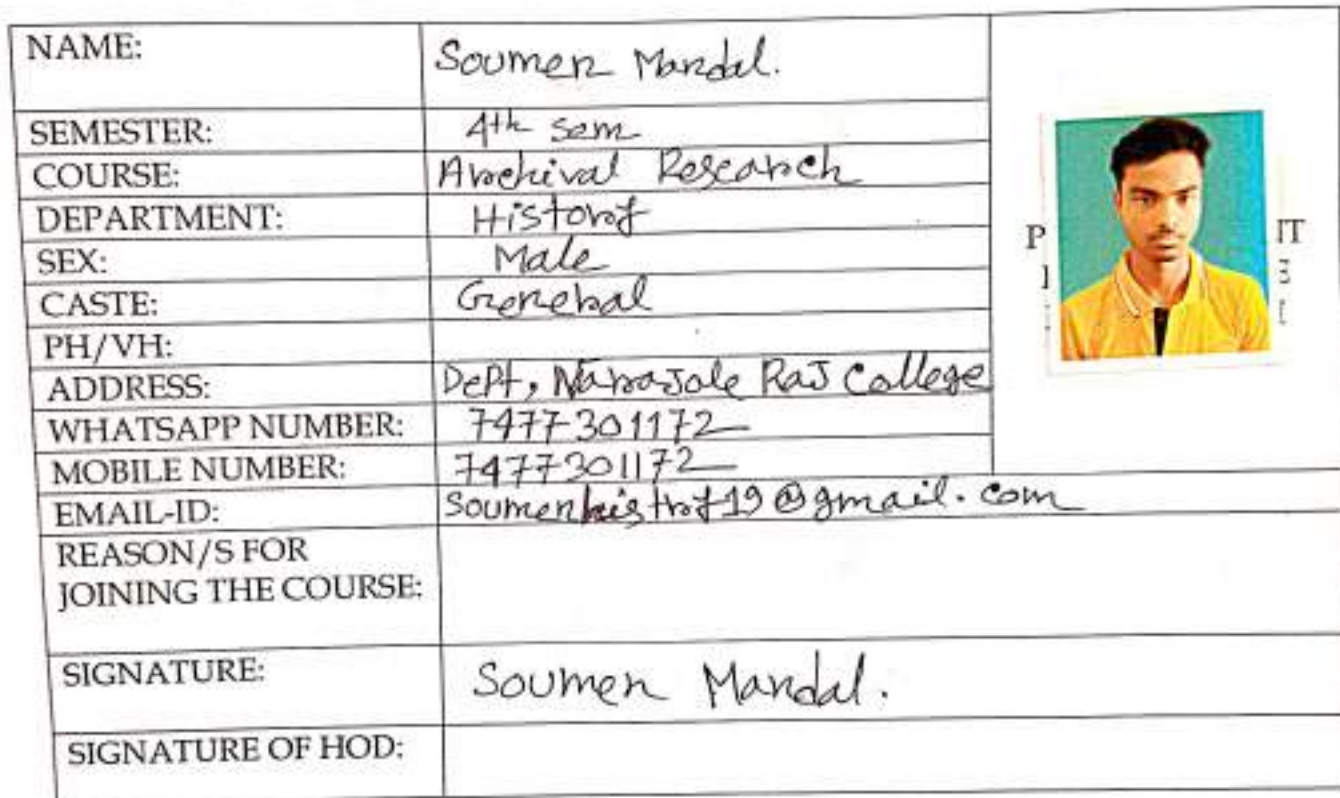 NAME: Soumen Mandal.
SEMESTER: 4th sem
COURSE: Archival Research
DEPARTMENT: History
SEX: Male
CASTE: General
PH/VH:
ADDRESS: Dept, Narajole Raj College
WHATSAPP NUMBER: 7477301172
MOBILE NUMBER: 7477301172
EMAIL-ID: Soumenhistory19@gmail.com
REASON/S FOR
JOINING THE COURSE:
SIGNATURE: Soumen Mandal.
SIGNATURE OF HOD: